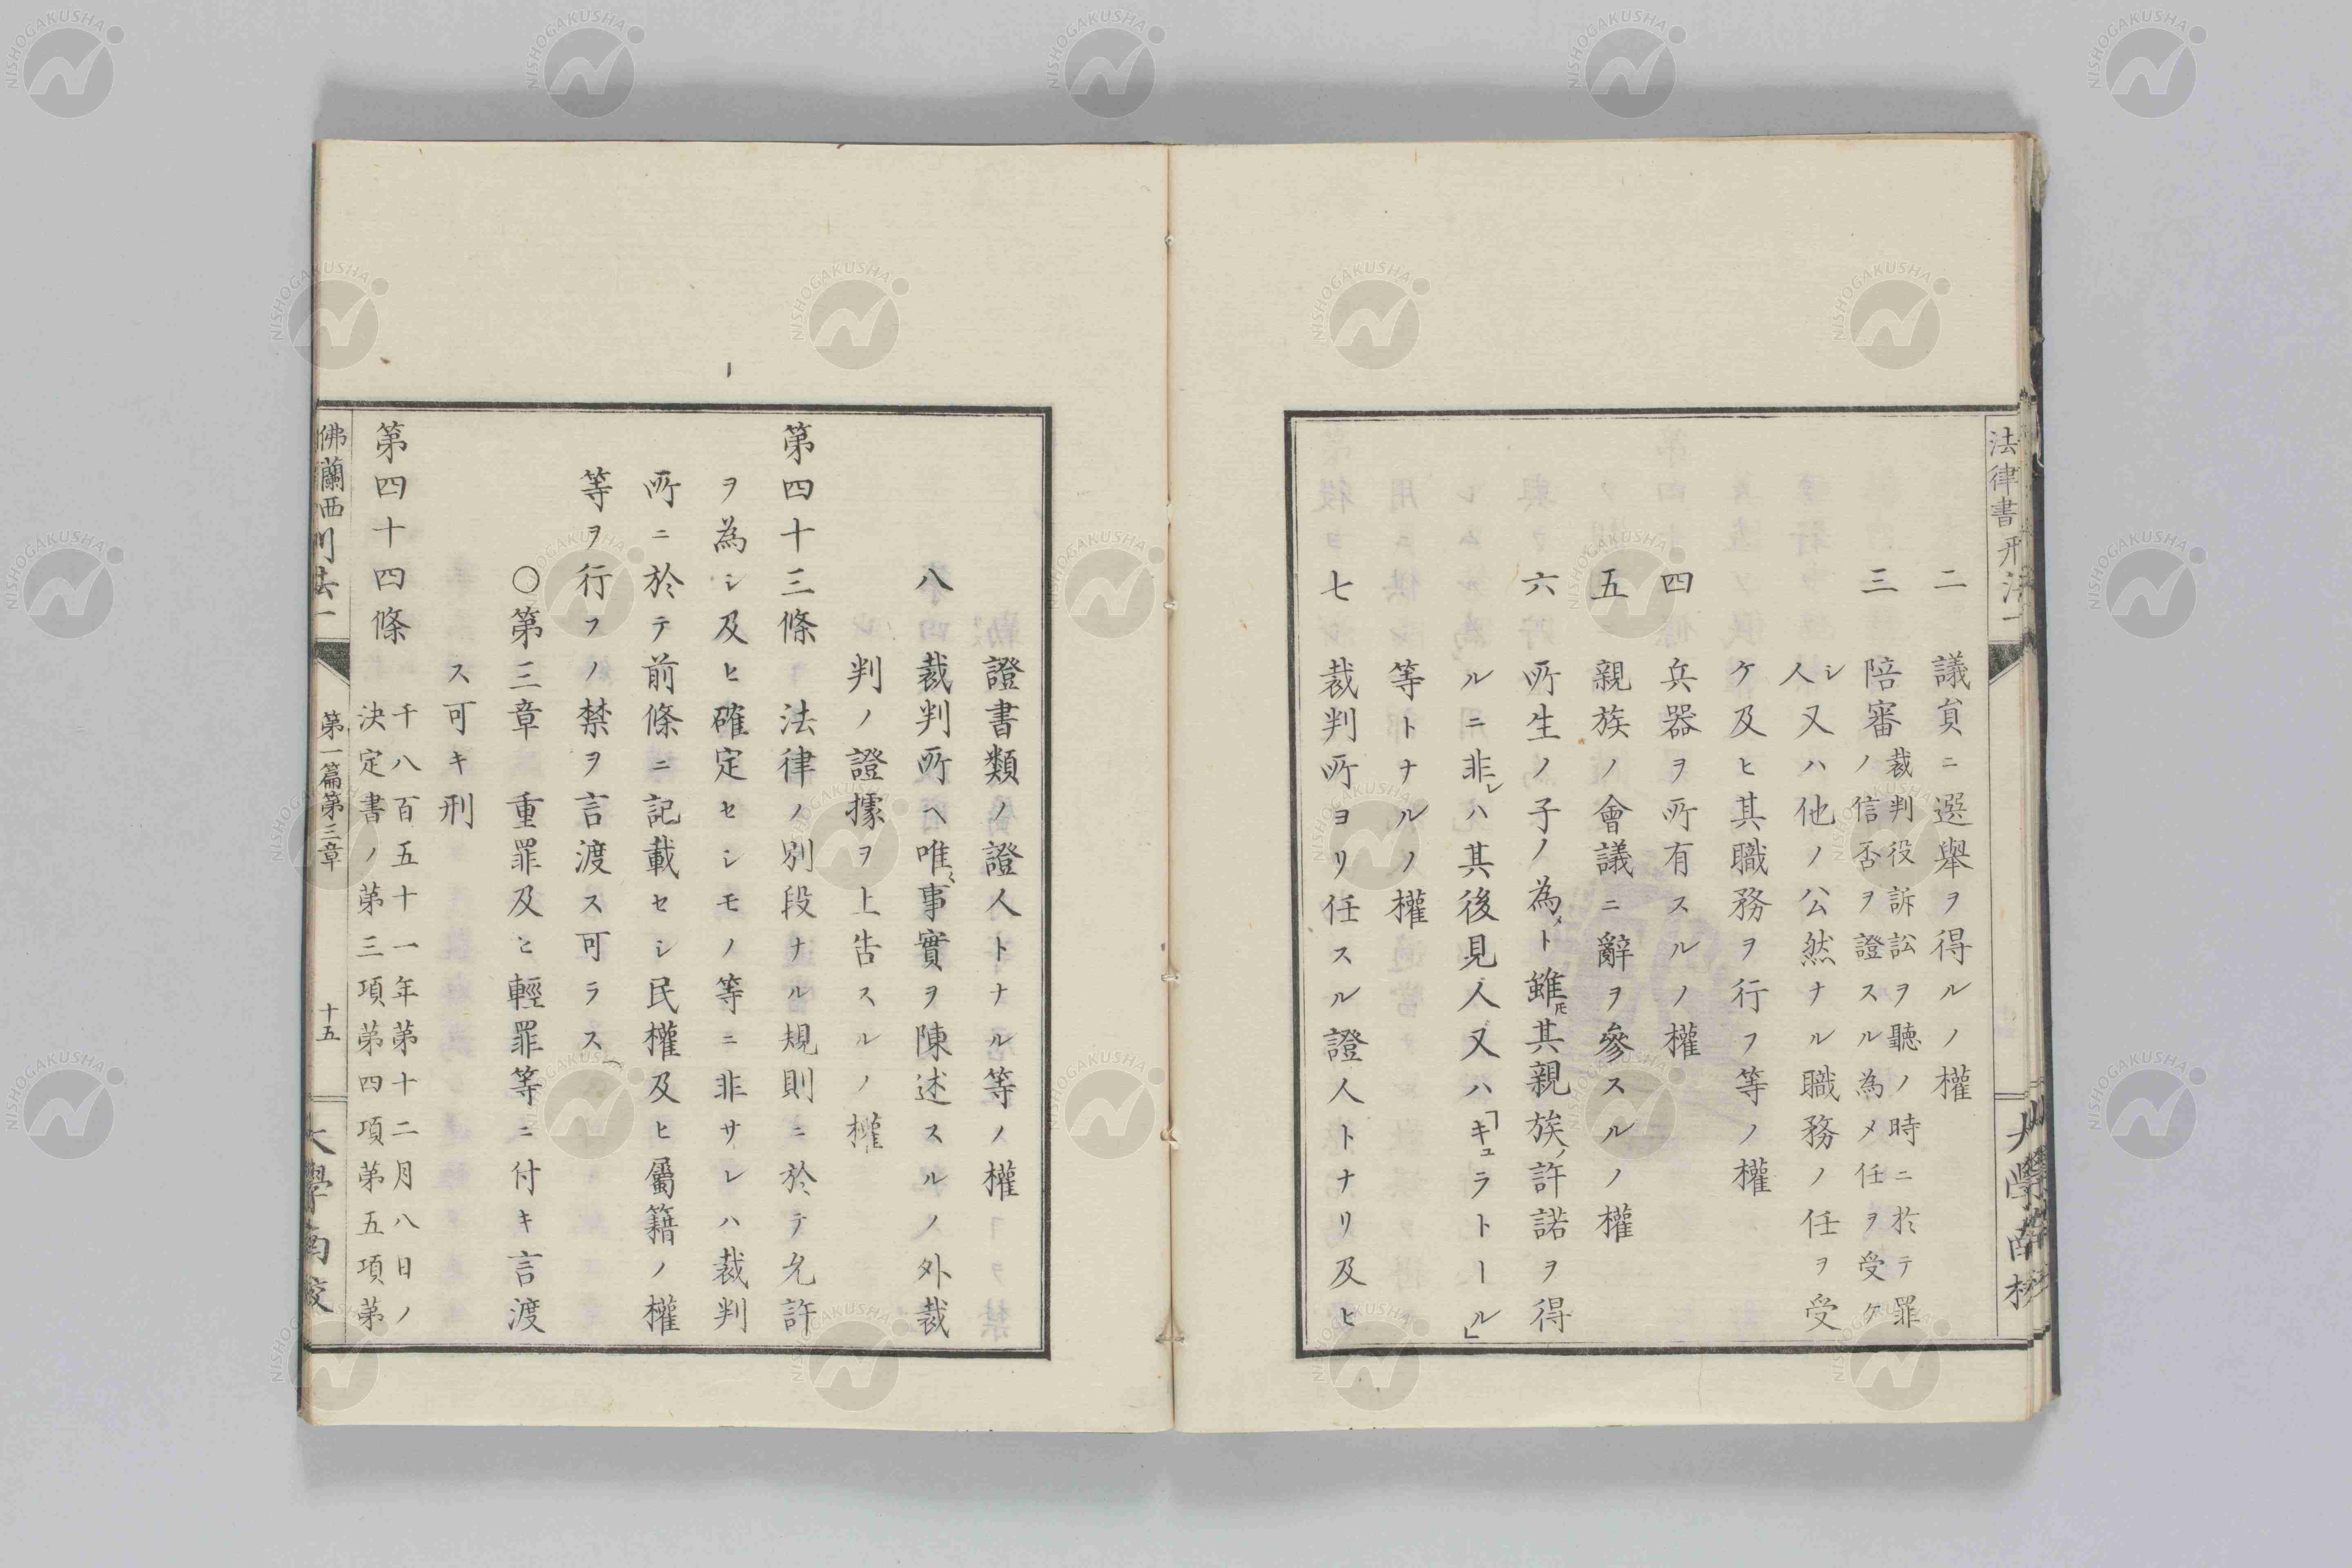 法律書刑法一
二 議員ニ選舉ヲ得ルノ權
三 陪審裁判役訴訟ヲ聽ノ時ニ於テ罪
ノ信否ヲ證スル為メ任ヲ受ケ
シ
人又ハ他ノ公然ナル職務ノ任ヲ受
ケ及ヒ其職務ヲ行フ等ノ權
四 兵器ヲ所有スルノ權
五 親族ノ會議ニ辭ヲ參スルノ權
六 所生ノ子ノ為メト雖𪜈其親族ノ許諾ヲ得
ルニ非レハ其後見人又ハ「キュラトール」
等トナルノ權
七 裁判所ヨリ任スル證人トナリ及ヒ
大學南校
證書類ノ證人トナル等ノ權
八 裁判所ヘ唯〻事實ヲ陳述スルノ外裁
判ノ證據ヲ上告スルノ權
第四十三條 法律ノ別段ナル規則ニ於テ允許
ヲ為シ及ヒ確定セシモノ等ニ非サレハ裁判
所ニ於テ前條ニ記載セシ民權及ヒ屬籍ノ權
等ヲ行フノ禁ヲ言渡ス可ラス
〇第三章 重罪及ヒ輕罪等ニ付キ言渡
ス可キ刑
第四十四條 千八百五十一年第十二月八日ノ
決定書ノ第三項第四項第五項第
佛蘭西刑法一
第一篇第三章
十五
大學南校
NISHOGAKUSHA